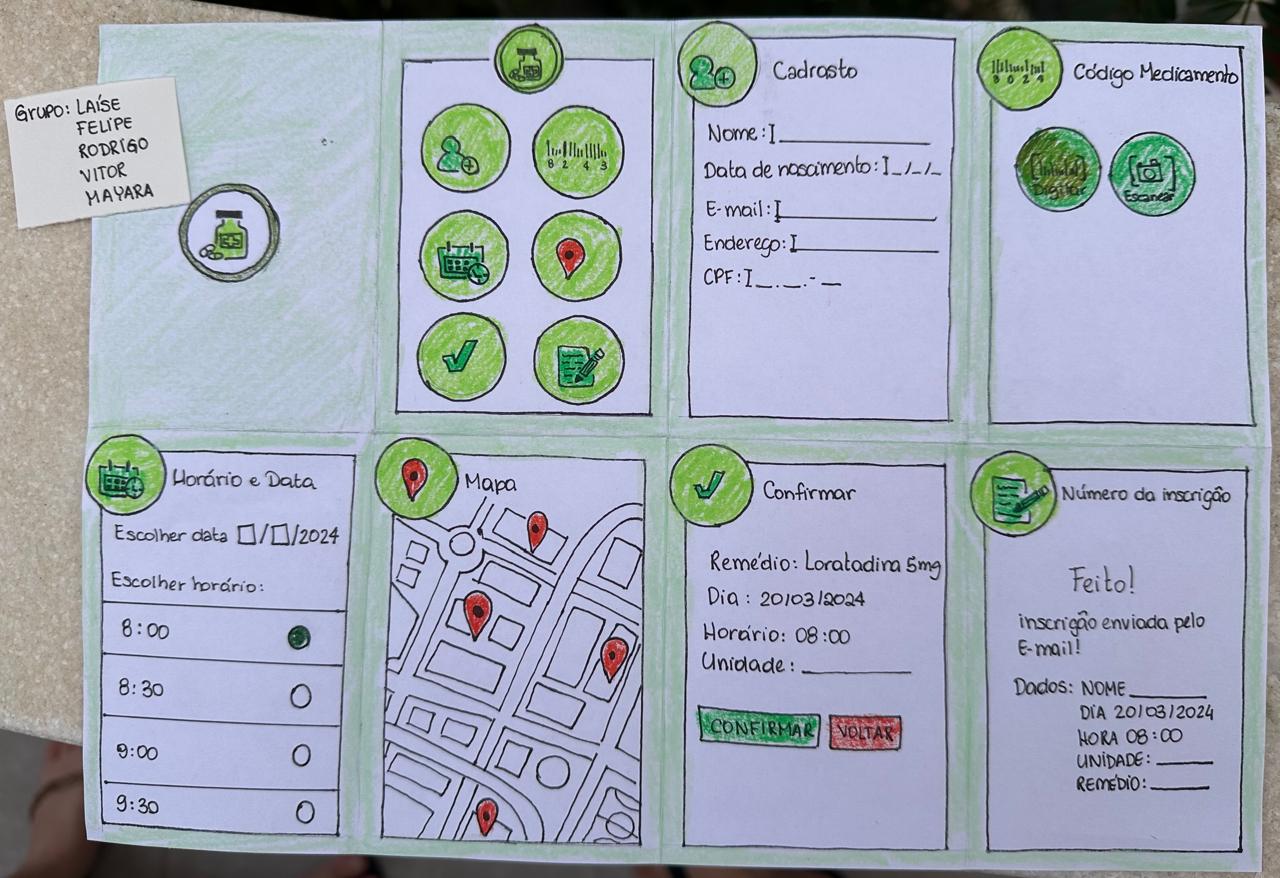 Grupo: LAÍSE
FELIPE
RODRIGO
VITOR
MAYARA
8 2 4 3
Cadrasto
Nome:
Data de nascimento: _/_/_
E-mail:
Endereço:
CPF: _._.-_
8 0 2 4
Código Medicamento
Digitar
Escanear
Horário e Data
Escolher data □/□/2024
Escolher horário:
8:00
8:30
9:00
9:30
Mapa
Confirmar
Remédio: Loratadina 5mg
Dia: 20/03/2024
Horário: 08:00
Unidade:
CONFIRMAR VOLTAR
Número da inscrição
Feito!
inscrição enviada pelo
E-mail!
Dados: NOME
DIA 20/03/2024
HORA 08:00
UNIDADE:
REMÉDIO: